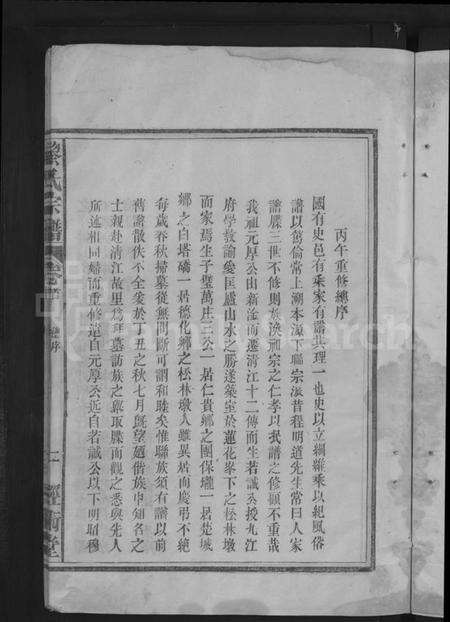 丙午重修總序
國有史邑有乘家有譜其理一也史以立綱維乘以紀風俗
譜以篤倫常上溯本源下聯宗派昔程明道先生常曰人家
譜牒三世不修則族渙渙宗之仁孝以泯譜之修顧不重哉
我祖元厚公由新淦而遷清江十二傳而生若誠公授九江
府學教諭愛匡廬山水之勝遂築室於蓮花峯下之松林墩
而家焉生子璧萬庄三公一居仁貴鄉之團保壠一居楚城
鄉之白塔橋一居德化鄉之松林墩人雖異居而慶弔不絕
每歲春秋掃墓從無間斷可謂和睦矣惟聯族須有譜以前
舊譜散佚不全爰於丁丑之秋七月既望廼偕族中知名之
士親赴清江故里爲拜墓訪族之冀取牒而觀之悉與先人
所述相同歸而重修遺自元厚公迄自若誠公以下明昭穆
氏宗譜
總序